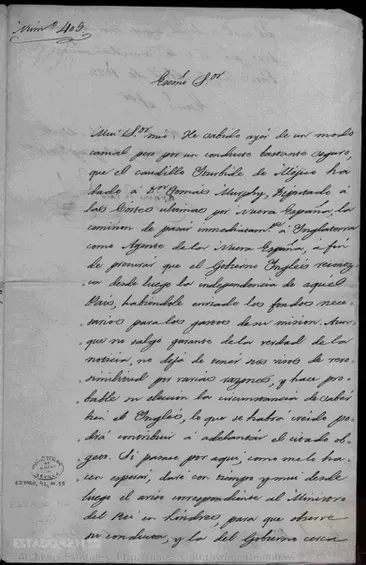 Núm.º 405
Excmo S.or
Muy S.or mío: He sabido ayer de un modo
casual pero por un conducto bastante seguro,
que el caudillo Iturbide de Méjico ha
dado á D.n Tomás Murphy, Diputado á
las Cortes ultimas por Nueva España, la
comision de pasar inmediatam.te á Inglaterra
como Agente de la Nueva España, á fin
de procurar que el Gobierno Inglés reconoz-
ca desde luego la independencia de aquel
Pais, habiendole enviado los fondos nece-
sarios para los gastos de su mision. Aun-
que no salgo garante de la verdad de la
noticia, no deja de tener sus visos de vero-
similitud por varias razones, y hace pro-
bable su eleccion la circunstancia de saber
bien el Inglés, lo que se habrá creido po-
drá contribuir á adelantar el citado ob-
geto. Si pasase por aqui, como me lo ha-
cen esperar, daré con tiempo y muy desde
luego el aviso correspondiente al Ministro
del Rei en Lóndres, para que observe
su conducta, y la del Gobierno cerca
ESTADO, 92, N. 33